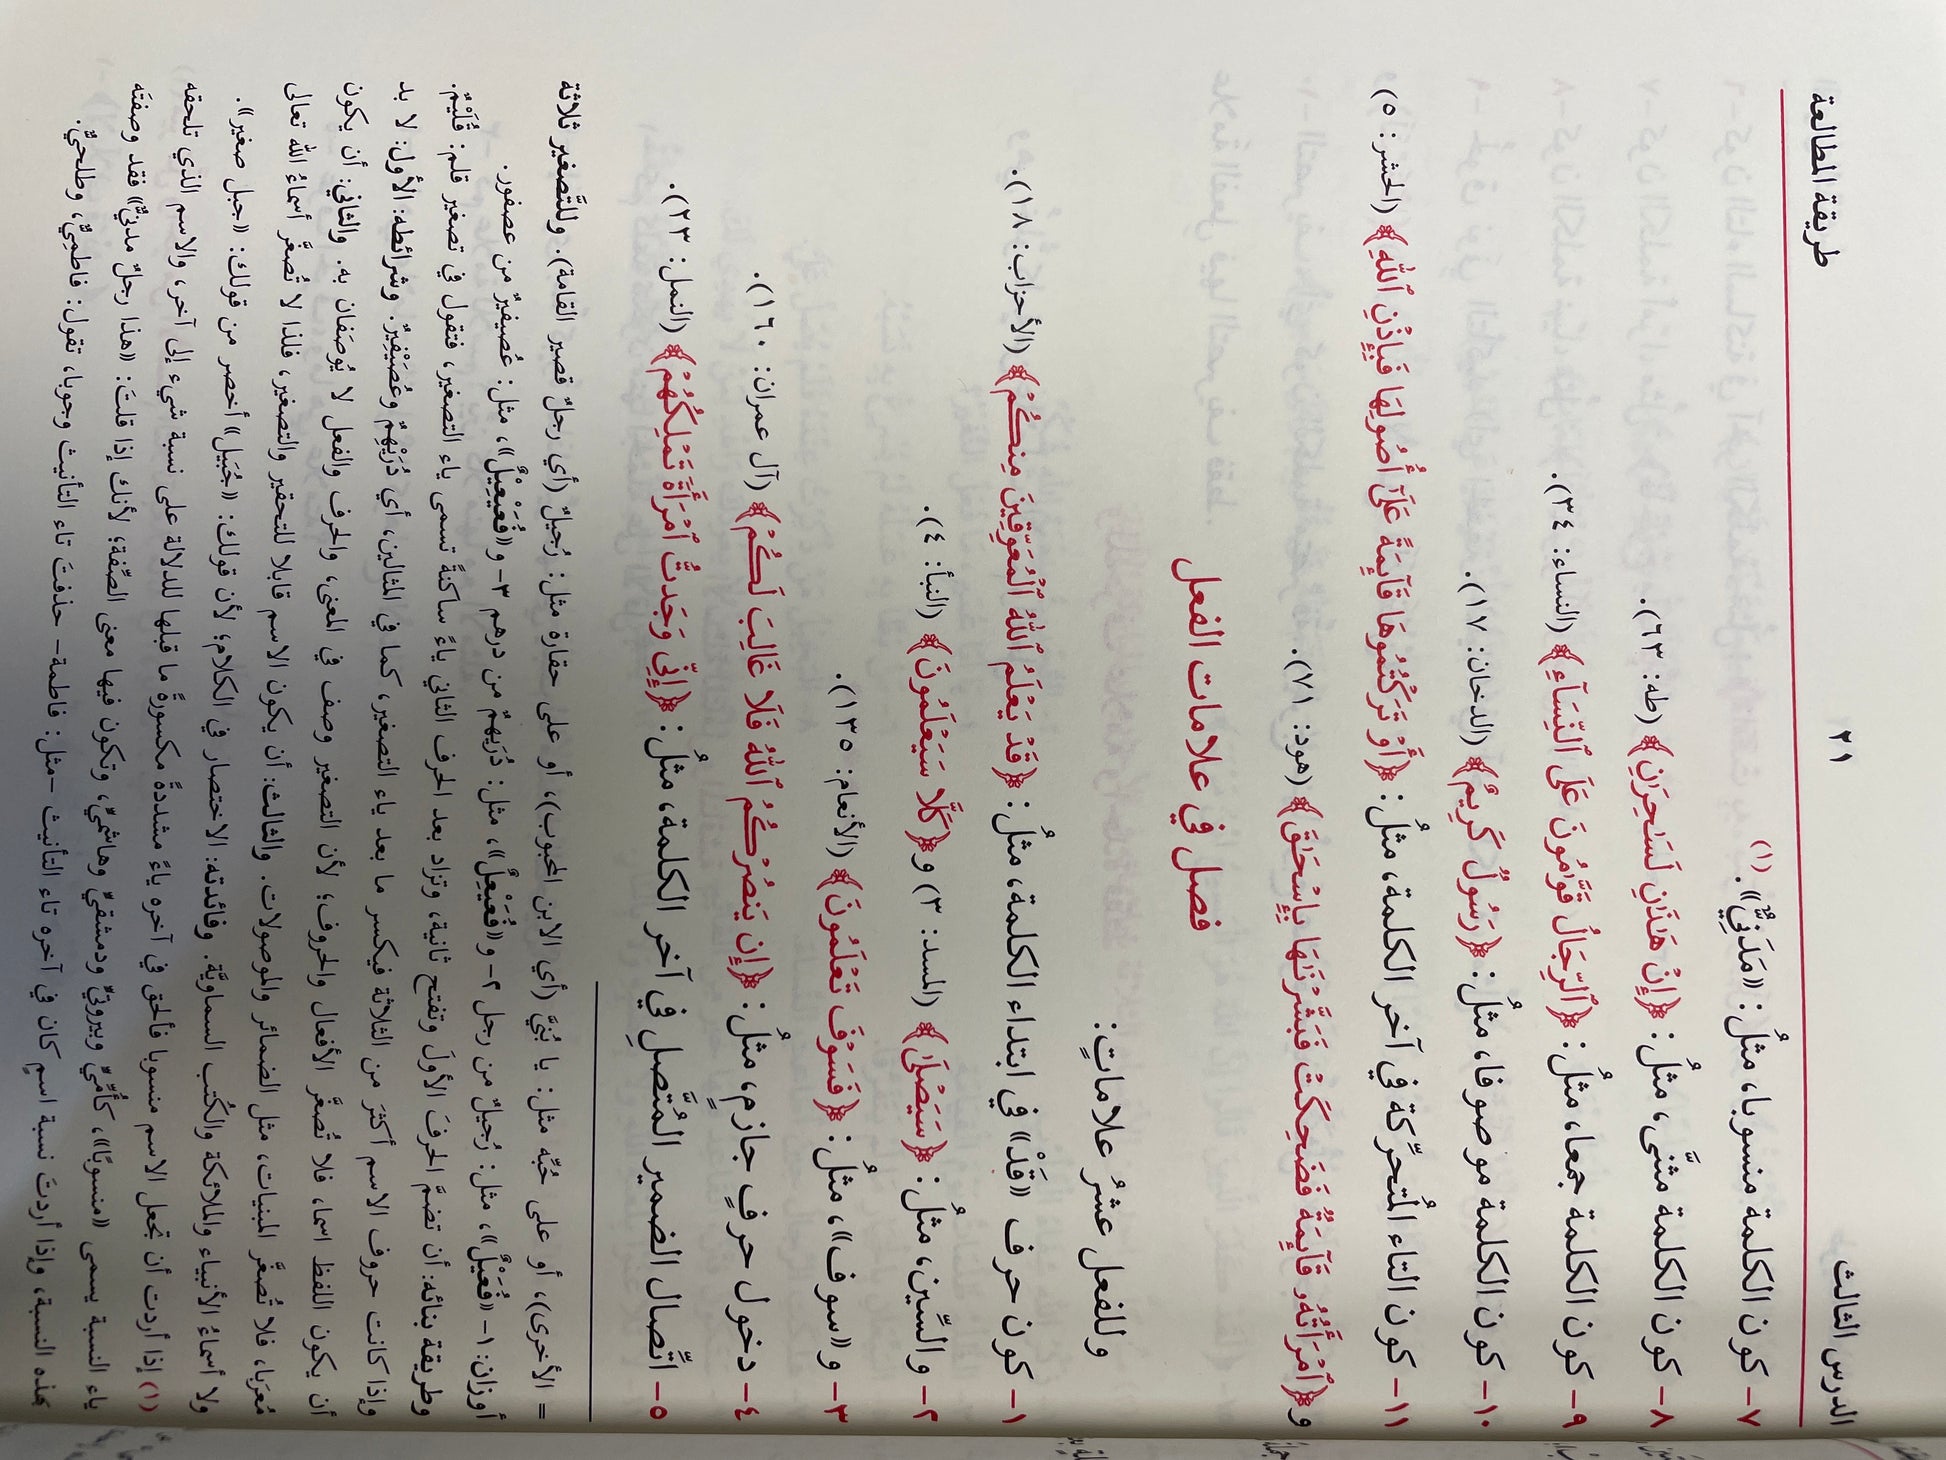 الدرس الثالث ٢١ طريقة المطالعة
٧- كون الكلمة منسوبا، مثلُ: «مَدَنِيٌّ»(١).
٨- كون الكلمة مثنَّى، مثلُ: ﴿إِنْ هَٰذَٰنِ لَسَٰحِرَٰنِ﴾ (طه: ٦٣).
٩- كون الكلمة جمعا، مثلُ: ﴿ٱلرِّجَالُ قَوَّٰمُونَ عَلَى ٱلنِّسَآءِ﴾ (النساء: ٣٤).
١٠- كون الكلمة موصوفا، مثلُ: ﴿رَسُولٌ كَرِيمٌ﴾ (الدخان: ١٧).
١١- كون التاء المُتحرِّكة في آخر الكلمة، مثلُ: ﴿أَوْ تَرَكْتُمُوهَا قَآئِمَةً عَلَىٰٓ أُصُولِهَا فَبِإِذْنِ ٱللَّهِ﴾ (الحشر: ٥)
و﴿ٱمْرَأَتُهُۥ قَآئِمَةٌ فَضَحِكَتْ فَبَشَّرْنَٰهَا بِإِسْحَٰقَ﴾ (هود: ٧١).
فصل في علامات الفعل
وللفعل عشرُ علاماتٍ:
١- كون حرف «قَدْ» في ابتداء الكلمة، مثلُ: ﴿قَدْ يَعْلَمُ ٱللَّهُ ٱلْمُعَوِّقِينَ مِنكُمْ﴾ (الأحزاب: ١٨).
٢- والسِّين، مثلُ: ﴿سَيَصْلَىٰ﴾ (المسد: ٣) و﴿كَلَّا سَيَعْلَمُونَ﴾ (النبأ: ٤).
٣- و«سوف»، مثلُ: ﴿فَسَوْفَ تَعْلَمُونَ﴾ (الأنعام: ١٣٥).
٤- دخول حرفٍ جازمٍ، مثلُ: ﴿إِن يَنصُرْكُمُ ٱللَّهُ فَلَا غَالِبَ لَكُمْ﴾ (آل عمران: ١٦٠).
٥- اتِّصال الضمير المُتَّصلِ في آخر الكلمة، مثلُ: ﴿إِنِّى وَجَدتُّ ٱمْرَأَةً تَمْلِكُهُمْ﴾ (النمل: ٢٣).
= الأخرى)، أو على حُبِّه مثل: يا بُنَيَّ (أي الابن المحبوب)، أو على حقارة مثل: رُجيلٌ (أي رجلٌ قصير القامة). وللتَّصغير ثلاثة
أوزان: ١- «فُعَيْلٌ»، مثل: رُجيلٌ من رجل ٢- و«فُعَيْعِلٌ»، مثل: دُرَيهمٌ من درهم ٣- و«فُعَيْعِيلٌ»، مثل: عُصيفيرٌ من عصفور.
وطريقة بنائه: أن تضمَّ الحرفَ الأولَ وتفتح ثانية، وتزاد بعد الحرف الثاني ياءً ساكنةً تسمى ياء التصغير، فتقول في تصغير قلم: قُلَيْمٌ.
وإذا كانت حروف الاسم أكثرَ من الثلاثة فيكسر ما بعد ياء التصغير، كما في المثالين، أي دُرَيْهِمٌ وعُصَيْفِيرٌ. وشرائطه: الأول: لا بد
أن يكون اللفظ اسما، فلا تُصغَّر الأفعال والحروف؛ لأن التصغير وصف في المعنى، والحرف والفعل لا يُوصَفان به. والثاني: أن يكون
مُعرَبا، فلا تُصغَّر المبنيات، مثل الضمائر والموصولات. والثالث: أن يكون الاسم قابلا للتحقير والتصغير، فلذا لا تُصغَّر أسماءُ الله تعالى
ولا أسماءُ الأنبياء والملائكة والكُتب السماويَّة. وفائدته: الاختصار في الكلام؛ لأن قولك: «جُبَيل» أخصر من قولك: «جبل صغير».
(١) إذا أردت أن تجعل الاسم منسوبا فألحق في آخره ياءً مشددةً مكسورةً ما قبلها للدلالة على نسبة شيء إلى آخر، والاسم الذي تلحقه
ياء النسبة يسمى «منسوبًا»، كأُمِّيٍّ وبيروتيٍّ ودمشقيٍّ وهاشميٍّ، وتكون فيها معنى الصِّفة؛ لأنك إذا قلتَ: «هذا رجلٌ مدنيٌّ» فقد وصفتَه
بهذه النسبة، وإذا أردتَ نسبة اسمٍ كان في آخره تاء التأنيث -مثل: فاطمة- حذفتَ تاء التأنيث وجوبا، تقول: فاطميٌّ، وطلحيٌّ.